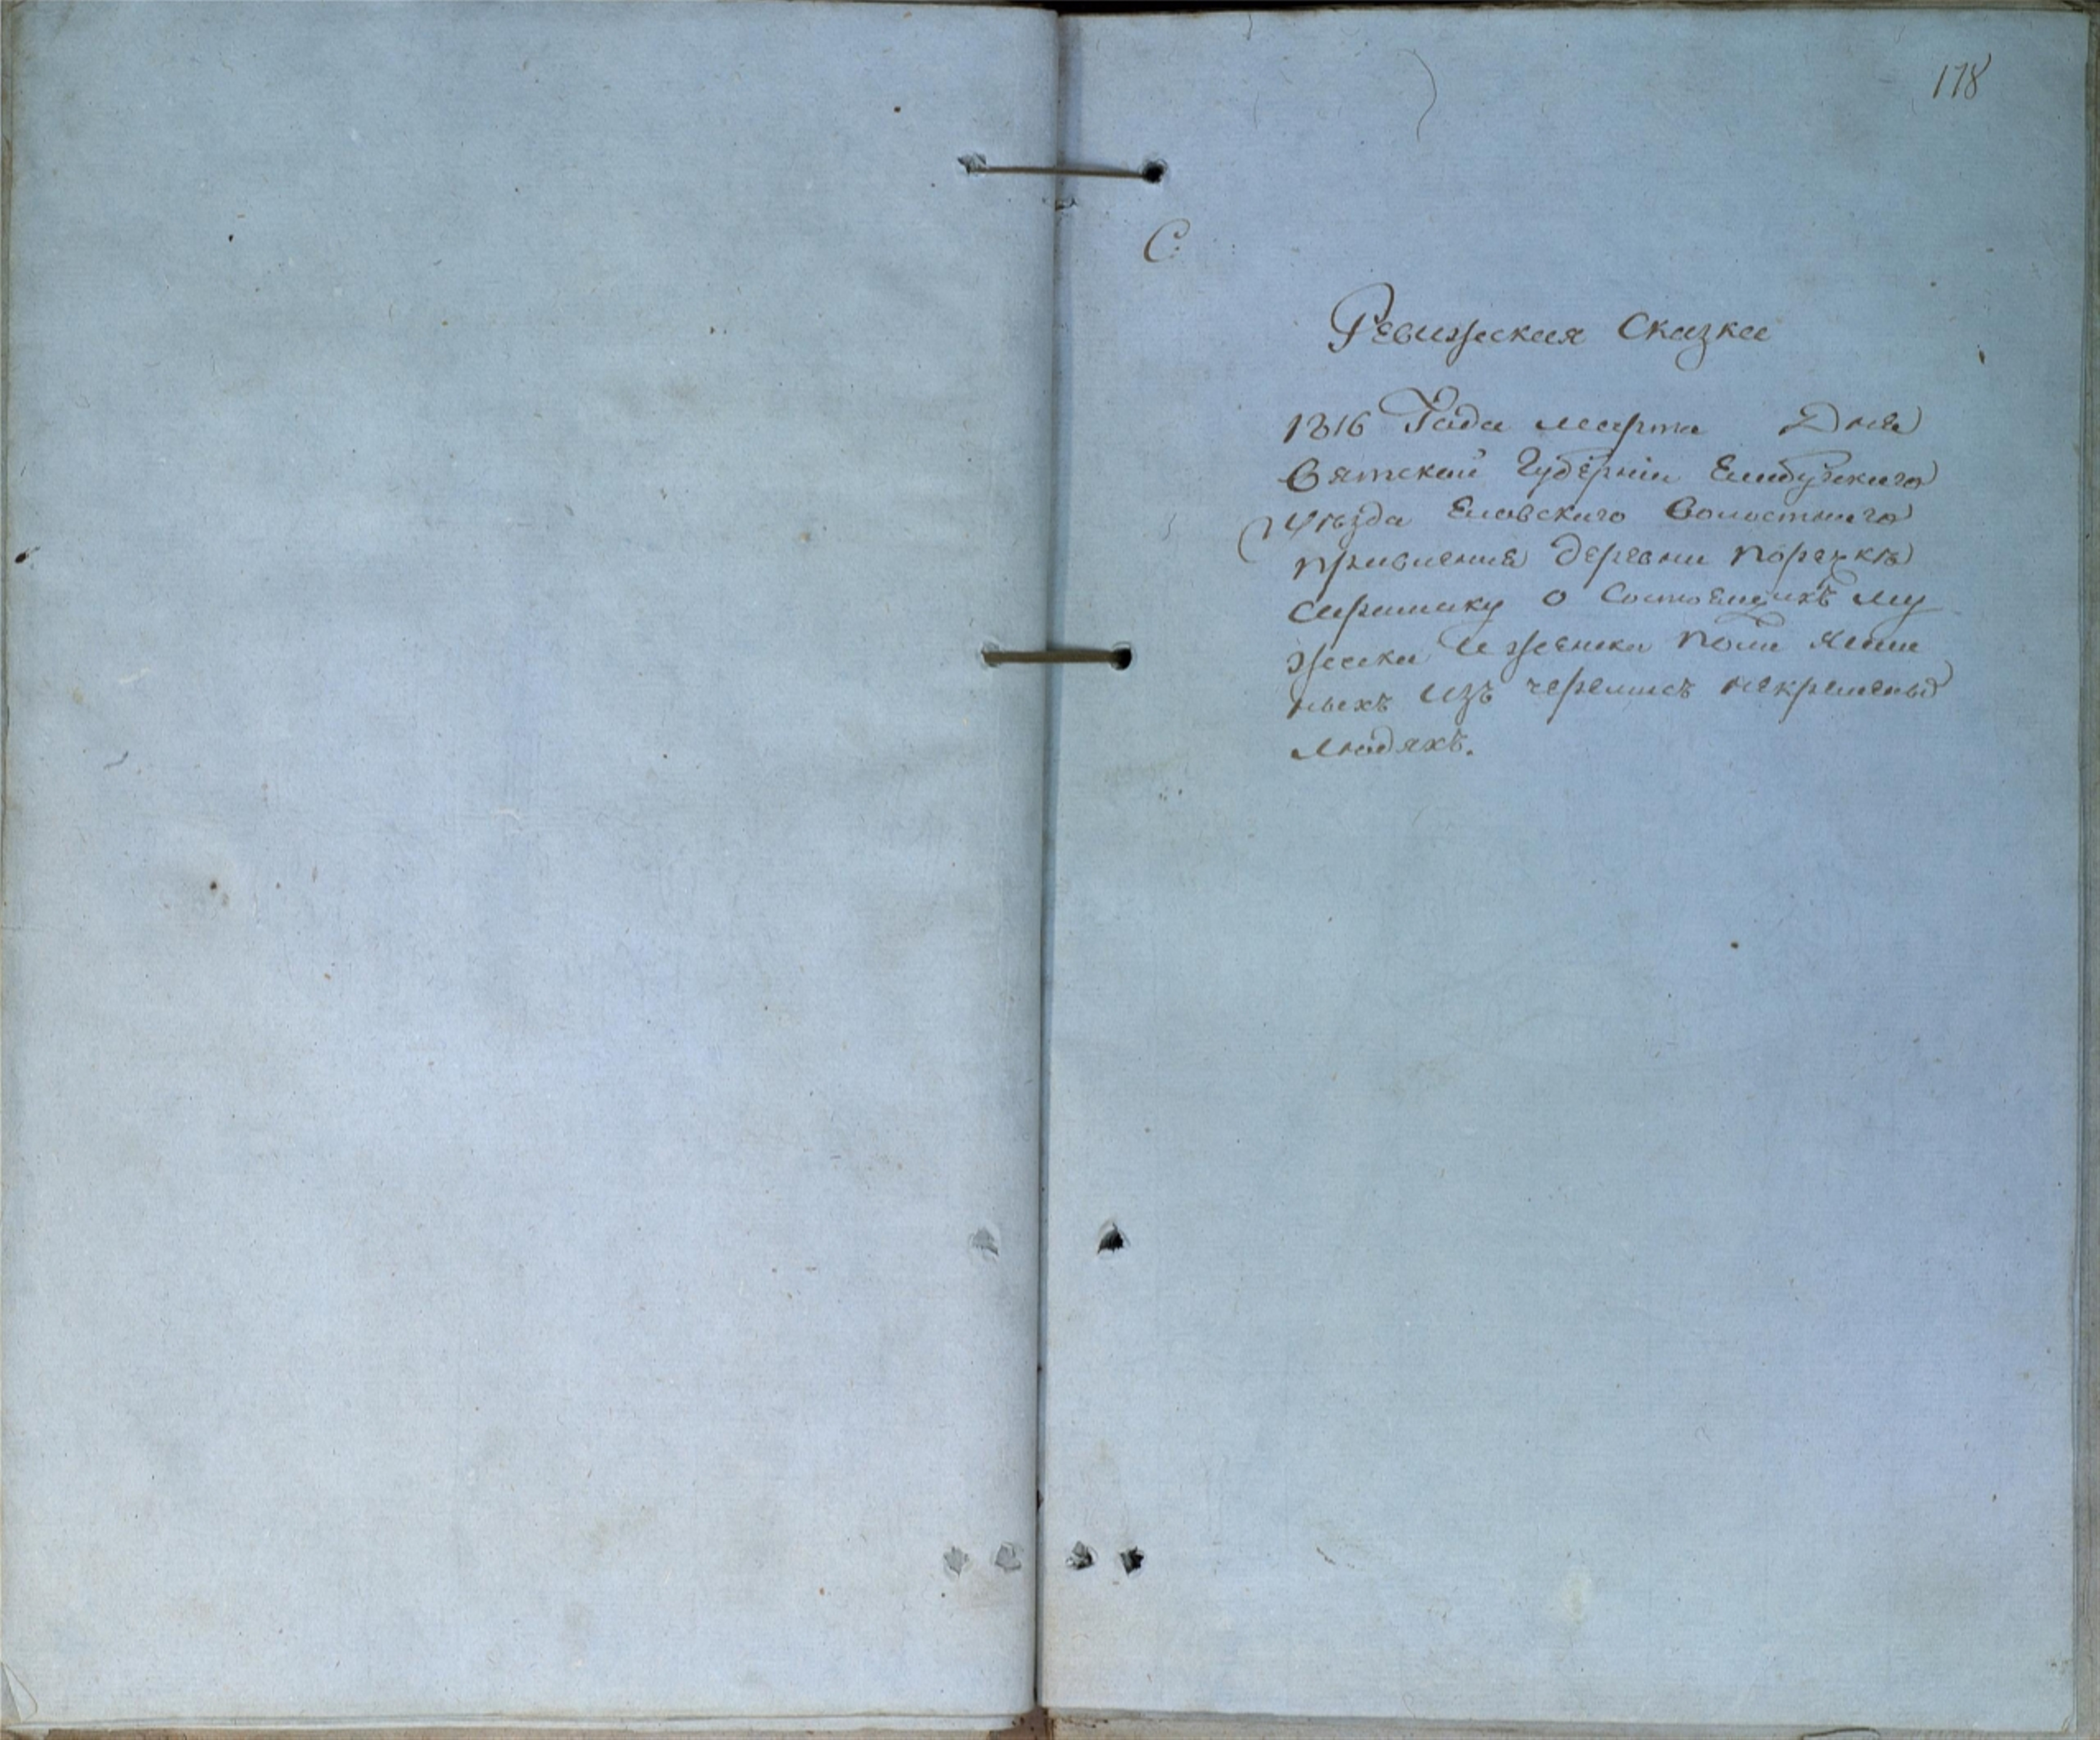 178
С
Ревижская Сказка
1816 Года марта Дня
Вятской Губернии Елабужского
Уезда Еловского Волостного
правления деревни поречкѣ
о Состоящихъ му
жеска И женска пола ясаш
ныхъ Изъ черемисъ некрещеных
людяхъ.